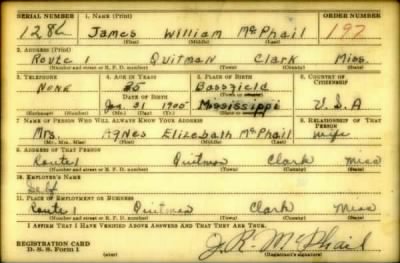 SERIAL NUMBER 1. NAME (Print) ORDER NUMBER
James William McPhail 197
(First) (Middle) (Last)
2. ADDRESS (Print)
Route 1 Quitman Clark Miss.
(Number and street or R. F. D. number) (Town) (County) (State)
3. TELEPHONE 4. AGE IN YEARS 5. PLACE OF BIRTH 6. COUNTRY OF CITIZENSHIP
None 35 Bassfield
DATE OF BIRTH (Town or county)
Jan. 31 1905 Mississippi U.S.A
(Exchange) (Number) (Mo.) (Day) (Yr.) (State or country)
7. NAME OF PERSON WHO WILL ALWAYS KNOW YOUR ADDRESS 8. RELATIONSHIP OF THAT PERSON
Mrs. Agnes Elizabath McPhail wife
(Mr., Mrs., Miss) (First) (Middle) (Last)
9. ADDRESS OF THAT PERSON
Route 1 Quitman Clark Miss
(Number and street or R. F. D. number) (Town) (County) (State)
10. EMPLOYER'S NAME
Self
11. PLACE OF EMPLOYMENT OR BUSINESS
Route 1 Quitman Clark Miss
(Number and street or R. F. D. number) (Town) (County) (State)
I AFFIRM THAT I HAVE VERIFIED ABOVE ANSWERS AND THAT THEY ARE TRUE.
REGISTRATION CARD
D. S. S. Form 1 (over) (Registrant's signature)